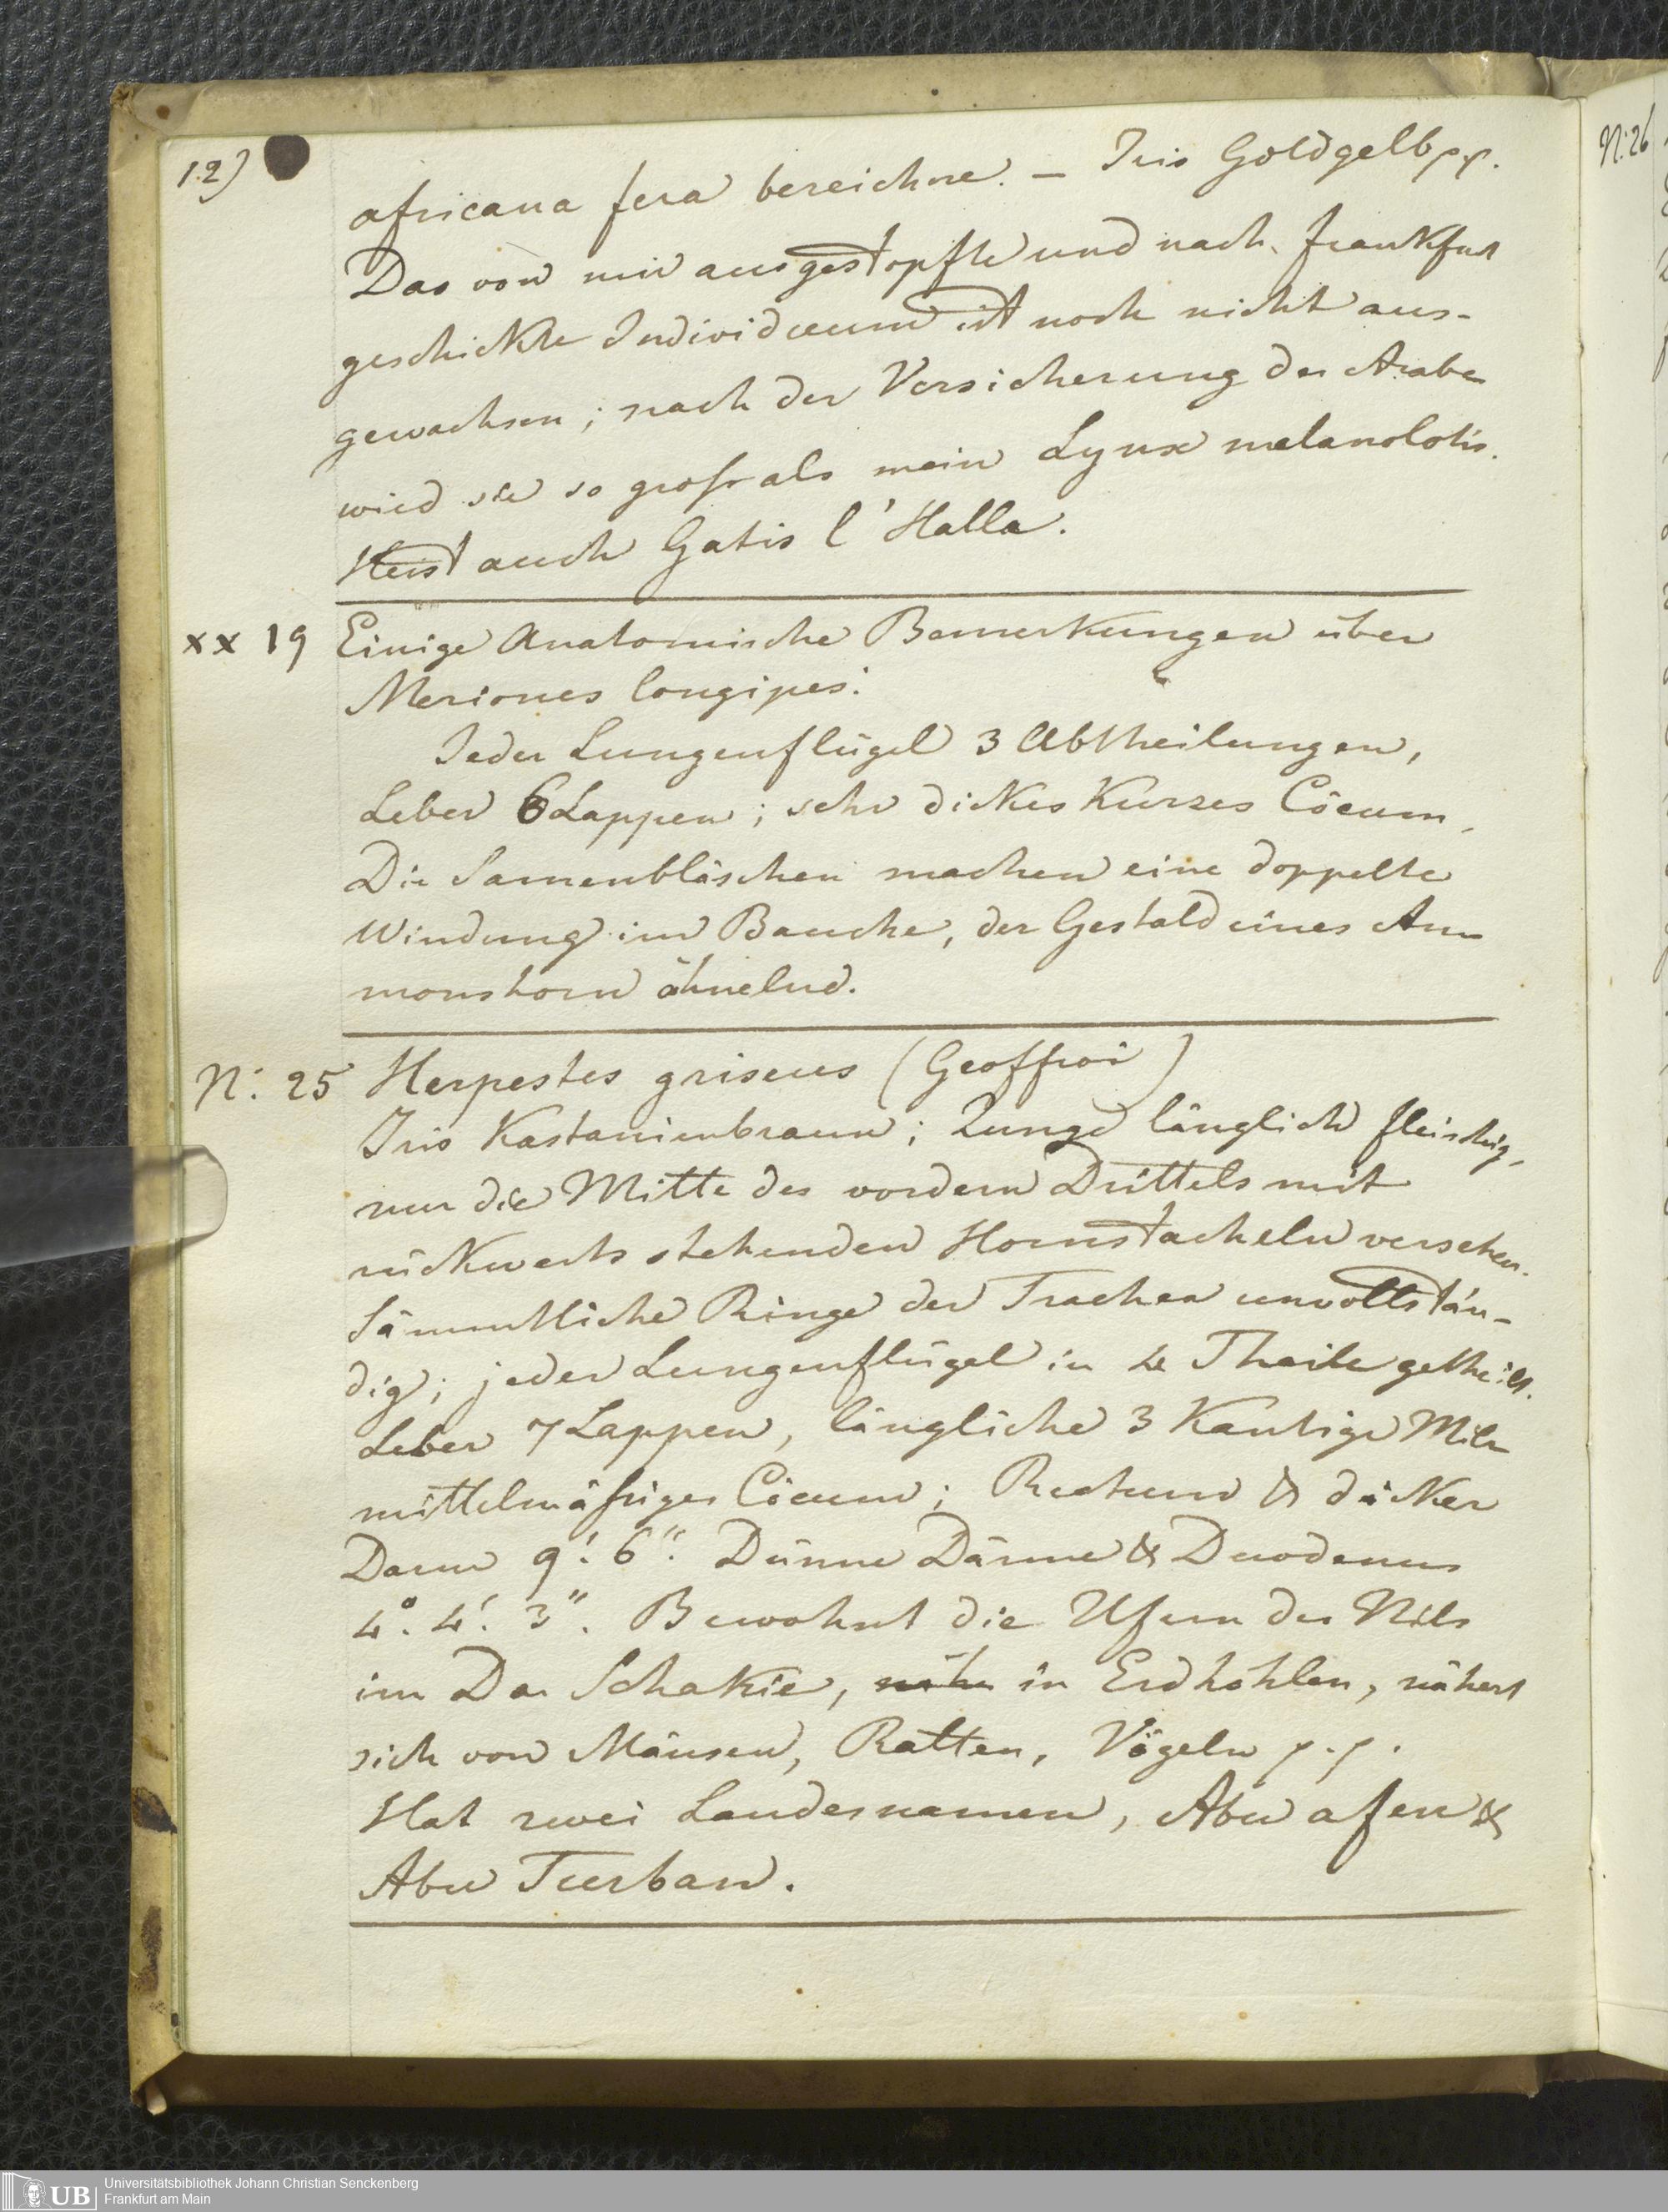 12)
africana fera bezeichne. – Iris Goldgelb p.p.
Das von mir ausgestopfte und nach Frankfurt
geschickte Individuum ist noch nicht aus-
gewachsen; nach der Versicherung der Araber
wird sie so groß als mein Lynx melanolotis.
Heist auch Gatis l'Halla.
xx 19 Einige Anatomische Bemerkungen über
Meriones longipes:
Jeder Lungenflügel 3 Abtheilungen,
Leber 6 Lappen; sehr dickes Kurzes Cöcum,
Die Samenbläschen machen eine doppelte
Windung im Bauche, der Gestald eines Am
monshorn ähnelnd.
N: 25 Herpestes griseus (Geoffroi)
Iris Kastanienbraun; Zunge länglich fleischig,
nur die Mitte des vordern Drittels mit
rückwerts stehenden Hornstacheln versehen.
Sämmtliche Ringe der Trachea unvollstän-
dig; jeder Lungenflügel in 4 Theile getheilt.
Leber 7 Lappen, längliche 3 Kantige Milz
mittelmäßiges Cöcum; Rectum & dicker
Darm 9'. 6". Dünne Därme & Duodenum
4°. 4'. 3". Bewohnt die Ufern des Nils
im Dar Schakie, nähr in Erdhöhlen, nähert
sich von Mäusen, Ratten, Vögeln p.p.
Hat zwei Landesnamen, Abu afen &
Abu Turban.
N: 26
UB
Universitätsbibliothek Johann Christian Senckenberg
Frankfurt am Main